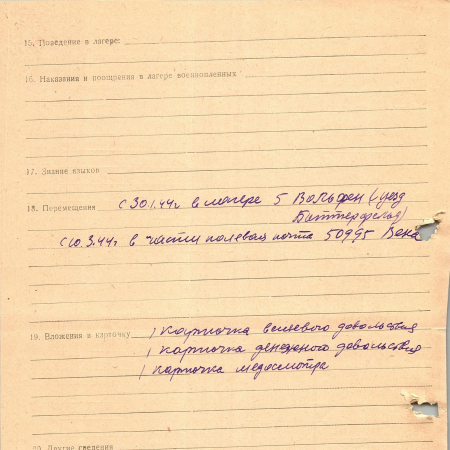 15. Поведение в лагере:
16. Наказания и поощрения в лагере военнопленных
17. Знание языков
18. Перемещения с 30.1.44г в лагере 5 Вольфен (уезд
Биттерфельд)
с 10.3.44г в части полевая почта 50995 Вена
19. Вложения в карточку 1 Карточка вещевого довольствия
1 карточка денежного довольствия
1 карточка медосмотра
20. Другие сведения